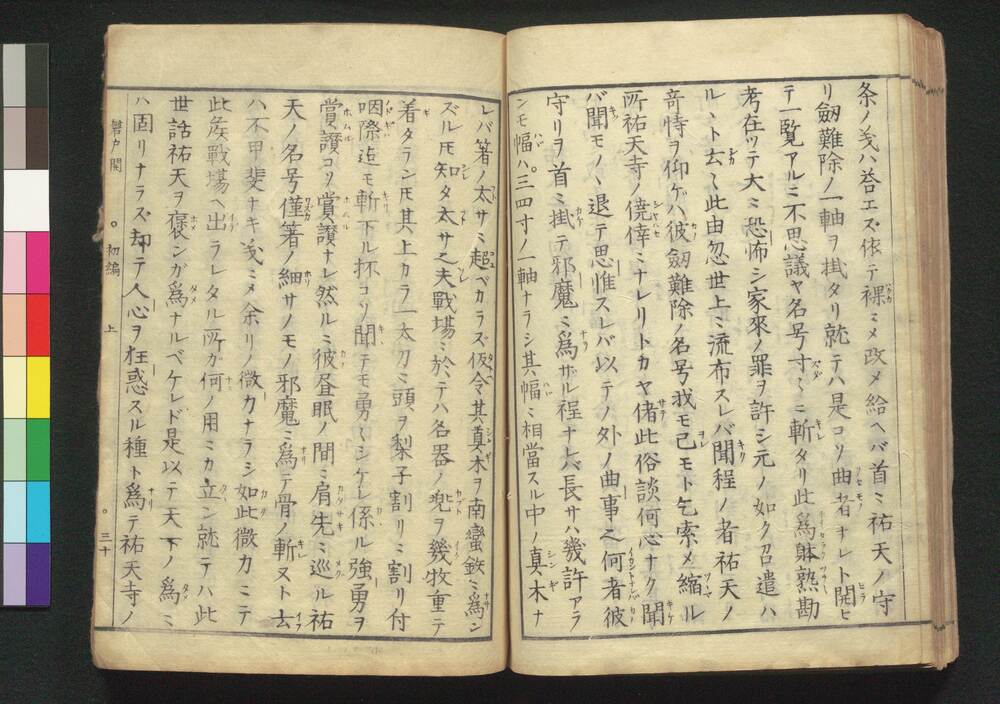 条ノ戔ハ荅エズ依テ裸ミメ改メ給ヘバ首ミ祐天ノ守
リ劔難除ノ一軸ヲ掛タリ就テハ是コソ曲者ナレト開ヒ
テ一覧アルミ不思議ヤ名号寸〻ミ斬タリ此為躰熟勘
考在ツテ大ミ恐怖シ家來ノ罪ヲ許シ元ノ如ク召遣ハ
ルヽト去〻此由忽世上ミ流布スレバ聞程ノ者祐天ノ
竒恃ヲ仰ゲハ彼劔難除ノ名号我モ己モト乞索メ縮ル
所祐天寺ノ僥倖ミナレリトカヤ偖此俗談何心ナク聞
バ聞モノヽ退テ思惟スレバ以テノ外ノ曲事〻何者彼
守リヲ首ミ掛テ邪魔ミ為ザル程ナレバ長サハ幾許アラ
ンモ幅ハ三四寸ノ一軸ナラシ其幅ミ相當スル中ノ真木ナ
レバ箸ノ太サミ超ベカラズ仮令其真木ヲ南蛮鉄ミ為ン
ズル𪜈知タ太サ之夫戦場ミ於テハ名器ノ兜ヲ幾牧重テ
着タラン𪜈其上カラ一太刀ミ頭ヲ梨子割リミ割リ付
咽際迠モ斬下ル抔コソ聞テモ勇〻シケレ係ル強勇ヲ
賞讃コソ賞讃ナレ然ルミ彼昼眠ノ間ミ肩先ミ巡ル祐
天ノ名号僅箸ノ細サノモノ邪魔ミ為テ骨ノ斬ヌト去
ハ不甲斐ナキ戔ミメ余リノ微力ナラシ如此微力ミテ
此矦戦場ヘ出ラレタル所ガ何ノ用ミカ立ン就テハ此
世話祐天ヲ褒ンガ為ナルベケレド是以テ天下ノ為ミ
ハ固リナラズ却テ人心ヲ枉惑スル種ト為テ祐天寺ノ
磐戸開
初編
上
三十